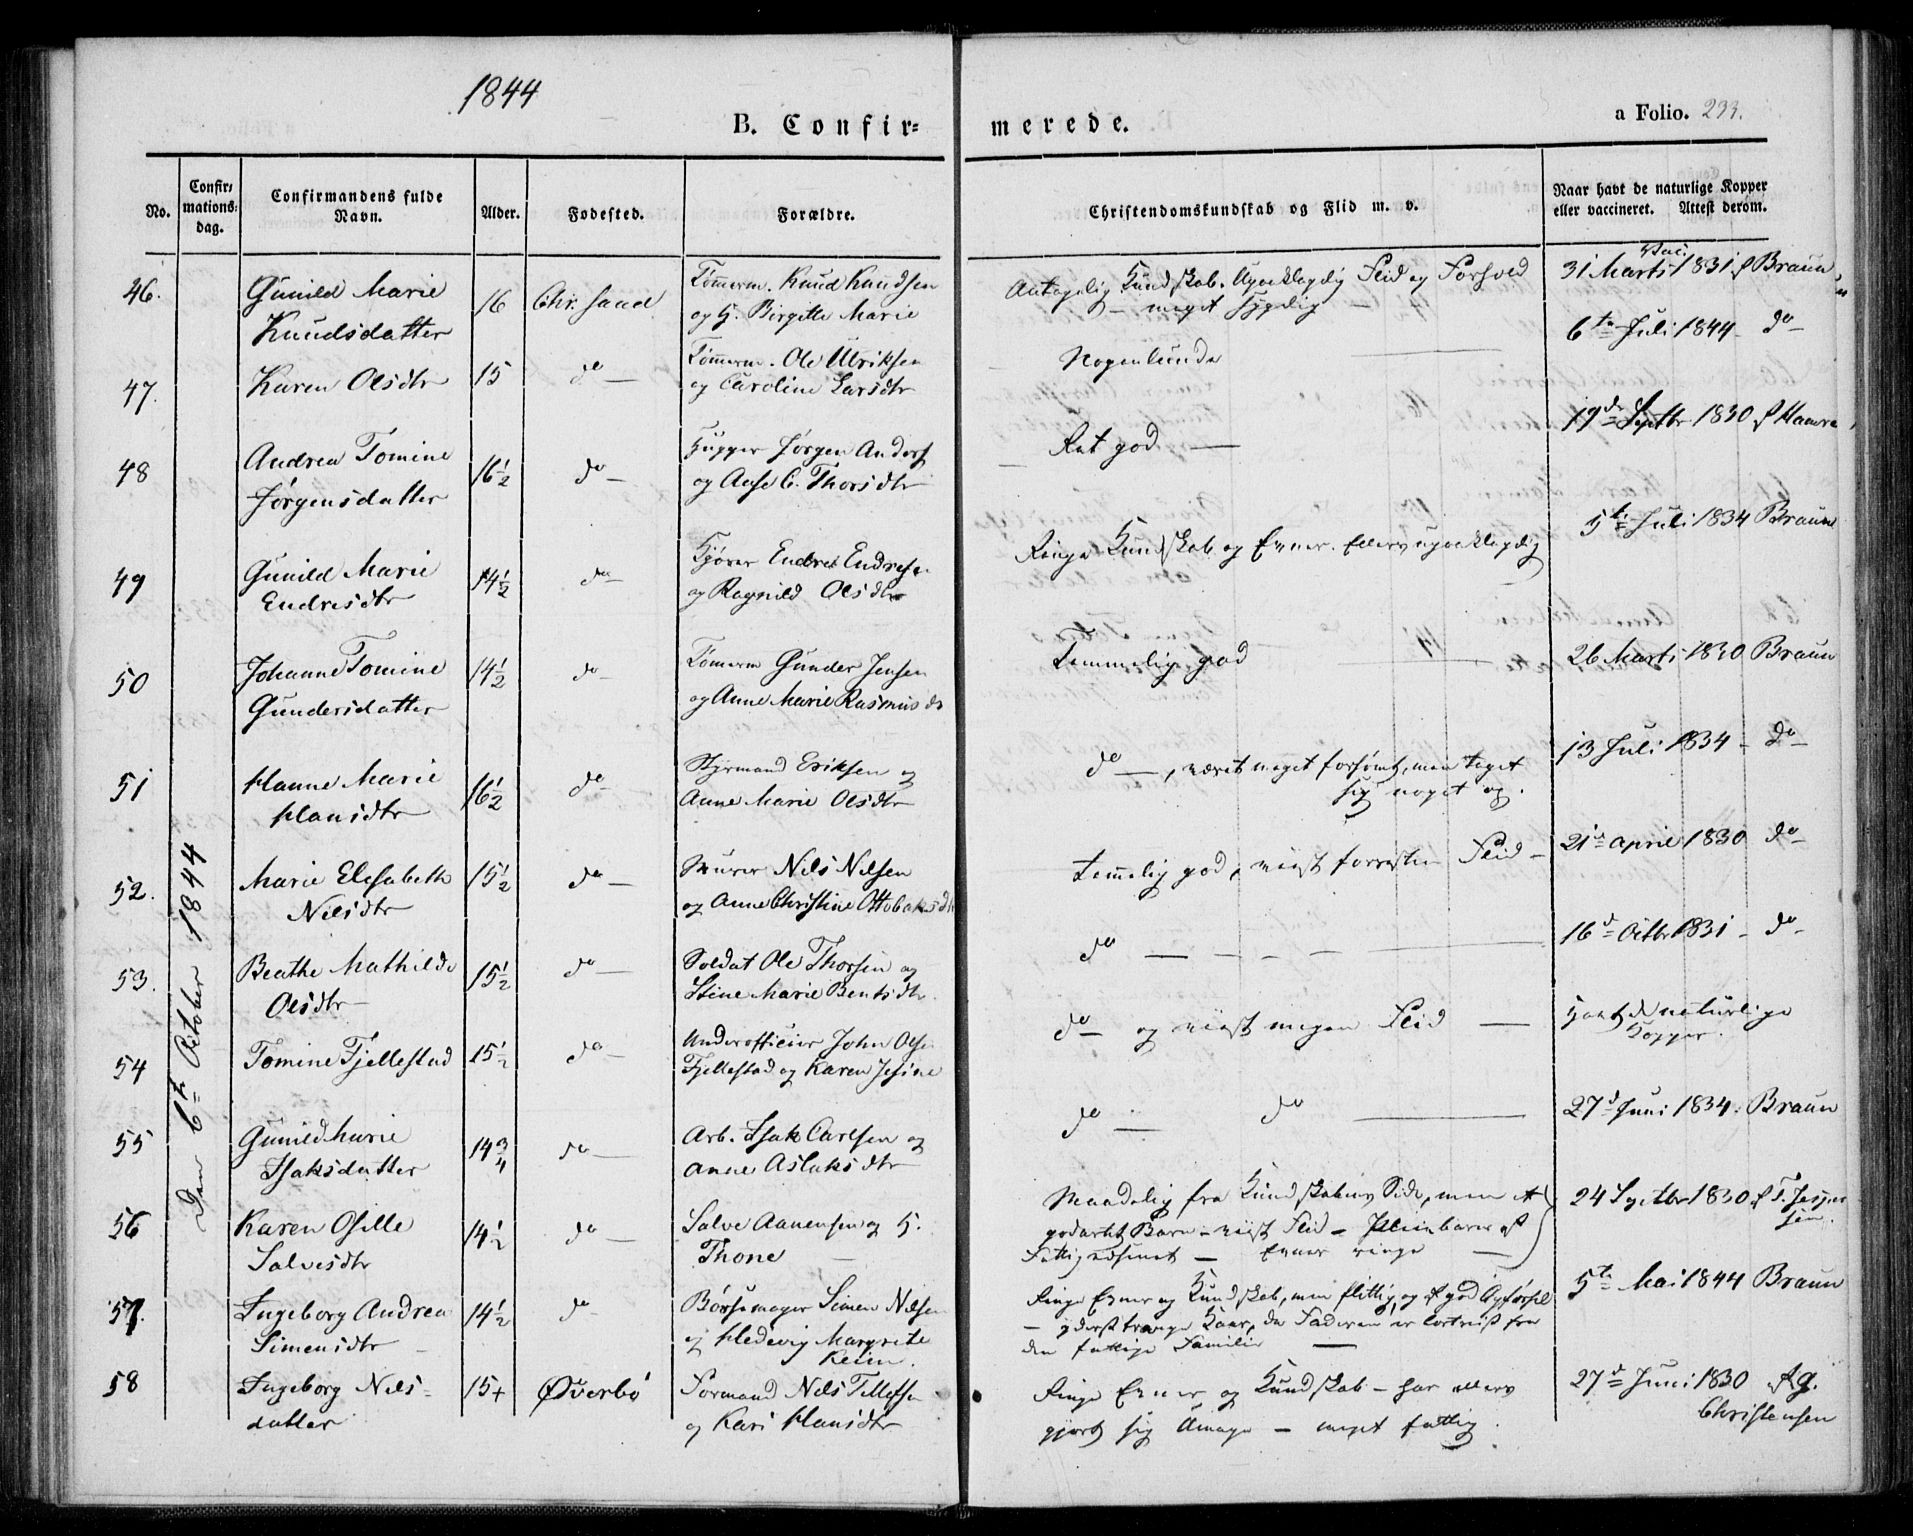 1844
B. Confirmerede.
a Folio. 233.
No.
Confirmationsdag.
Confirmandens fulde Navn.
Alder.
Fødested.
Forældre.
Christendomskundskab og Flid m. v.
Naar havt de naturlige Kopper eller vaccineret. Attest derom.
Den 6te October 1844
46. Gunild Marie 16 Chr.sand Tømerm. Knud Knudsen Antagelig Kundskab. Upaaklagelig Flid og Forhold Vac. 31 Marts 1831 Braun
Knudsdatter og H. Birgitte Marie – meget sygelig –
47. Karen Olsdtr 15 do Tømerm. Ole Ulriksen Nogenlunde 6te Juli 1844 – do
og Caroline Larsdtr
48 Andrea Tomine 16½ do Jørgen Ret god 19de Septbr 1830
Jørgensdatter og Aase C. Thorsdtr
49 Gunild Marie 14½ do Kjører Endre Endresen Ringe Kundskab og Evner. Ellers upaaklagelig 5te Juli 1834 Braun
Endresdtr og Ragnild Olsdtr
50 Johanne Tomine 14½ do Tømerm Gunder Jensen Temmelig god 26 Marts 1830 Braun
Gundersdatter og Anne Marie Rasmusdr
51 Hanne Marie 16½ do Styrmand Eriksen og do –, været meget forsømt, men taget 13 Juli 1834 – do
Hansdtr Anne Marie Olsdtr sig noget op.
52. Marie Elisabeth 15½ do Murer Nils Nilsen Temelig god, viist Flid – 21de April 1830 do
Nilsdtr og Anne Christine
53. Beathe Mathilde 15½ do Soldat Ole Thorsen og do 16de Octbr 1831 – do
Olsdtr Stine Marie Bentsdtr
54 Tomine Fjellestad 15½ do Underofficier John Olsen do og viist megen Flid Havt de naturlige
Fjellestad og Karen Jesine Kopper.
55 Gunild Marie 14¾ do Arb. Isak Carlsen og do do 27de Juni 1834. Braun
Isaksdatter Anne Aslaksdtr
56 Karen Osille 14½ do Salve Aanensen og H. Maadelig fra Kundskabens Side, men et 24 Septbr 1830
Salvesdtr Thone godartet Barn – viist Flid – Pleiebarn af
Fattigvæsenet – Evner ringe
57. Ingeborg Andrea 14½ do Børsemager Simen Nilsen Ringe Evner og Kundskab, men flittig, og af god Opførsel 5te Mai 1844 Braun
Simensdtr og Hedevig Margrete – yderst trange Kaar, da Faderen er bortreist fra
Keim. den fattige Familie
58 Ingeborg Nils- 15+ Øverbø Formand Nils Tellefsen Ringe Evner og Kundskab – har ellers 27de Juni 1830
datter og Kari Hansdtr gjort sig Umage – meget fattig. Christensen